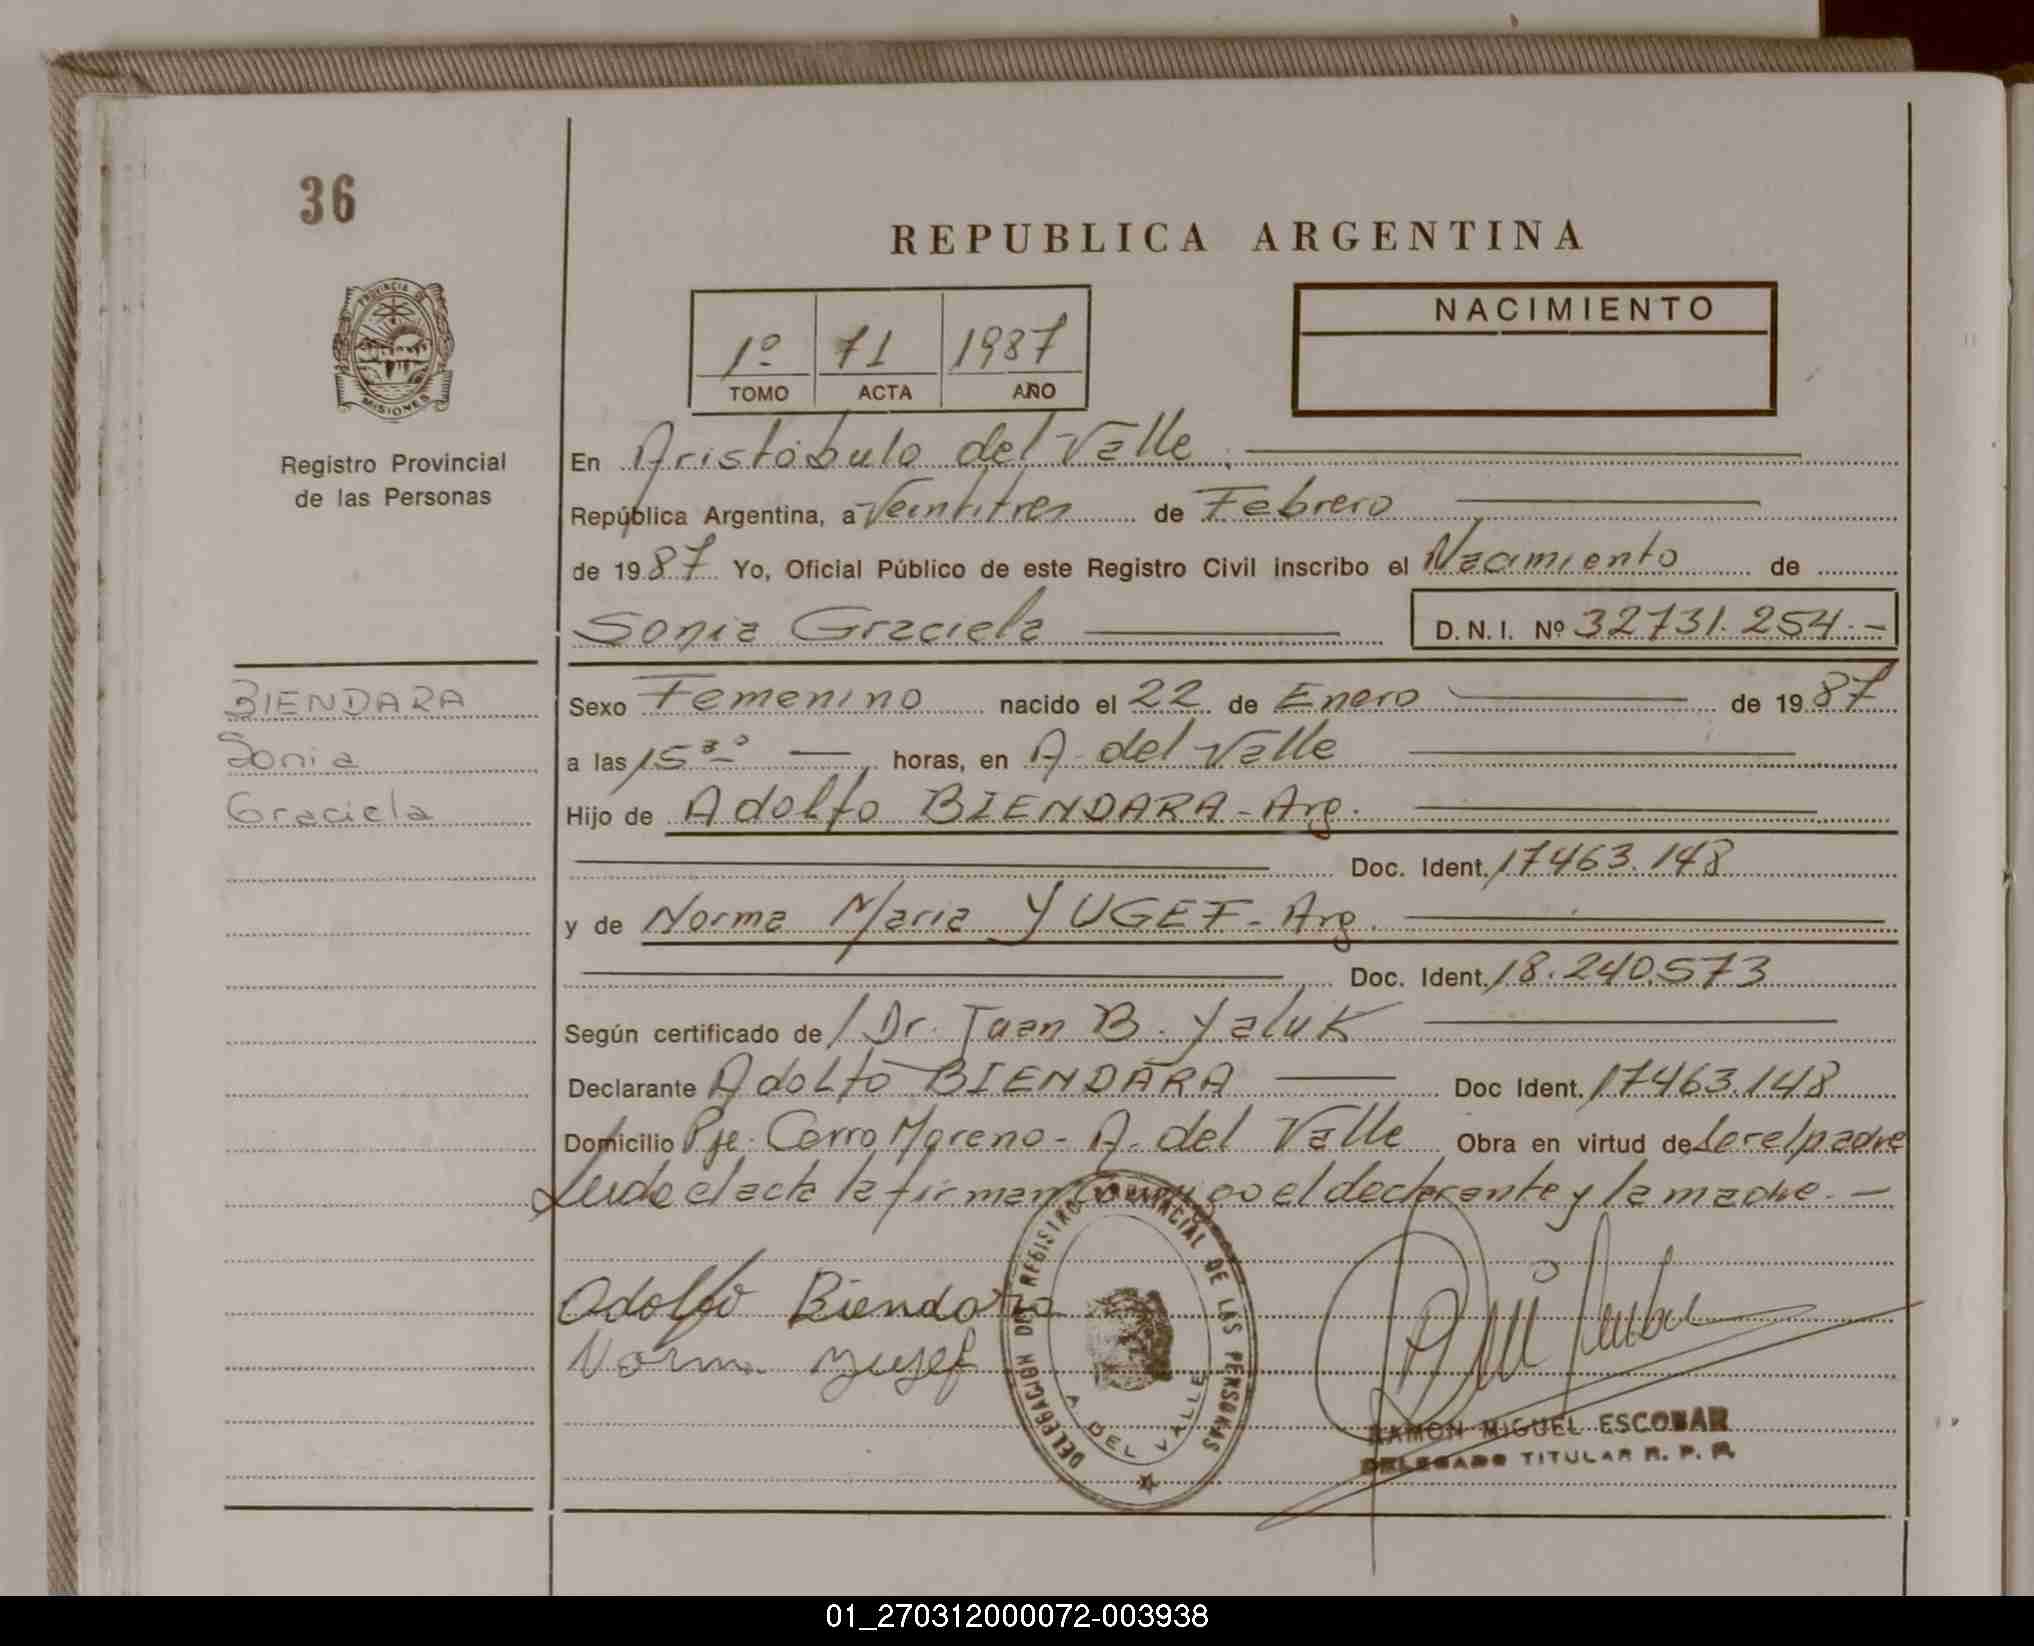 36
REPUBLICA ARGENTINA
NACIMIENTO
1º 71 1987
TOMO ACTA AÑO
PROVINCIA DE MISIONES
Registro Provincial
de las Personas
En Aristóbulo del Valle
República Argentina, a Veintitres de Febrero
de 1987 Yo, Oficial Público de este Registro Civil inscribo el Nacimiento de
Sonia Graciela D.N.I. Nº 32731.254.-
BIENDARA
Sonia
Graciela
Sexo Femenino nacido el 22 de Enero de 1987
a las 15³⁰ horas, en A. del Valle
Hijo de Adolfo BIENDARA - Arg.
Doc. Ident. 17463.148
y de Norma Maria YUGEF - Arg.
Doc. Ident. 18.240.573
Según certificado de Dr. Juan B. Yaluk
Declarante Adolfo BIENDARA Doc Ident. 17463.148
Domicilio Pje. Cerro Moreno - A. del Valle Obra en virtud de Ser el padre
Leida el acta la firman conmigo el declarante y la madre. -
Adolfo Biendara
Norma Yugef
DELEGACION DEL REGISTRO PROVINCIAL DE LAS PERSONAS
A DEL VALLE
RAMON MIGUEL ESCOBAR
DELEGADO TITULAR R. P. P.
01_270312000072-003938